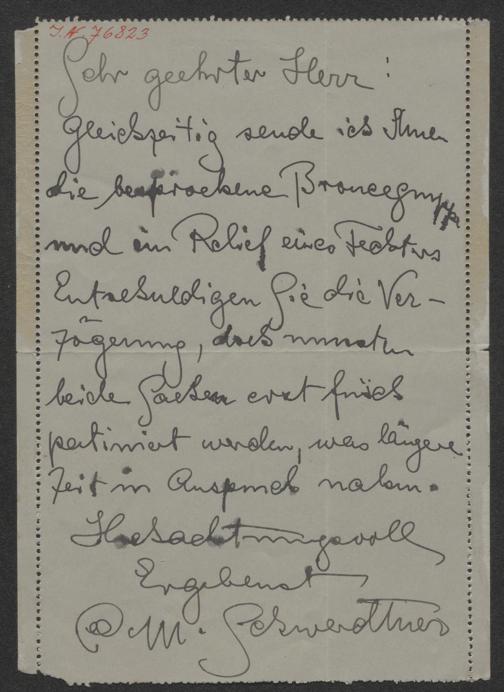 J.N. 76823
Sehr geehrter Herr!
Gleichzeitig sende ich Ihnen
die besprochene Broncegruppe
und ein Relief eines Fechters
Entschuldigen Sie die Ver-
zögerung, doch mussten
beide Sachen erst frisch
patiniert werden, was längere
Zeit in Anspruch nahm.
Hochachtungsvoll
Ergebenst
C. M. Schwerdtner